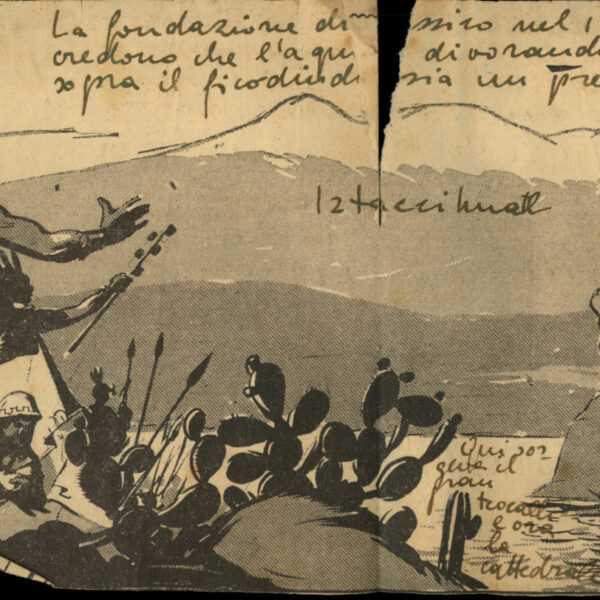 La fondazione di ssico nel 1
credono che l'aqu divorand
sopra il ficodind sia un pre
Iztaccihuatl
Qui sor
que il
gran
teocalli
e ora
la
cattedral